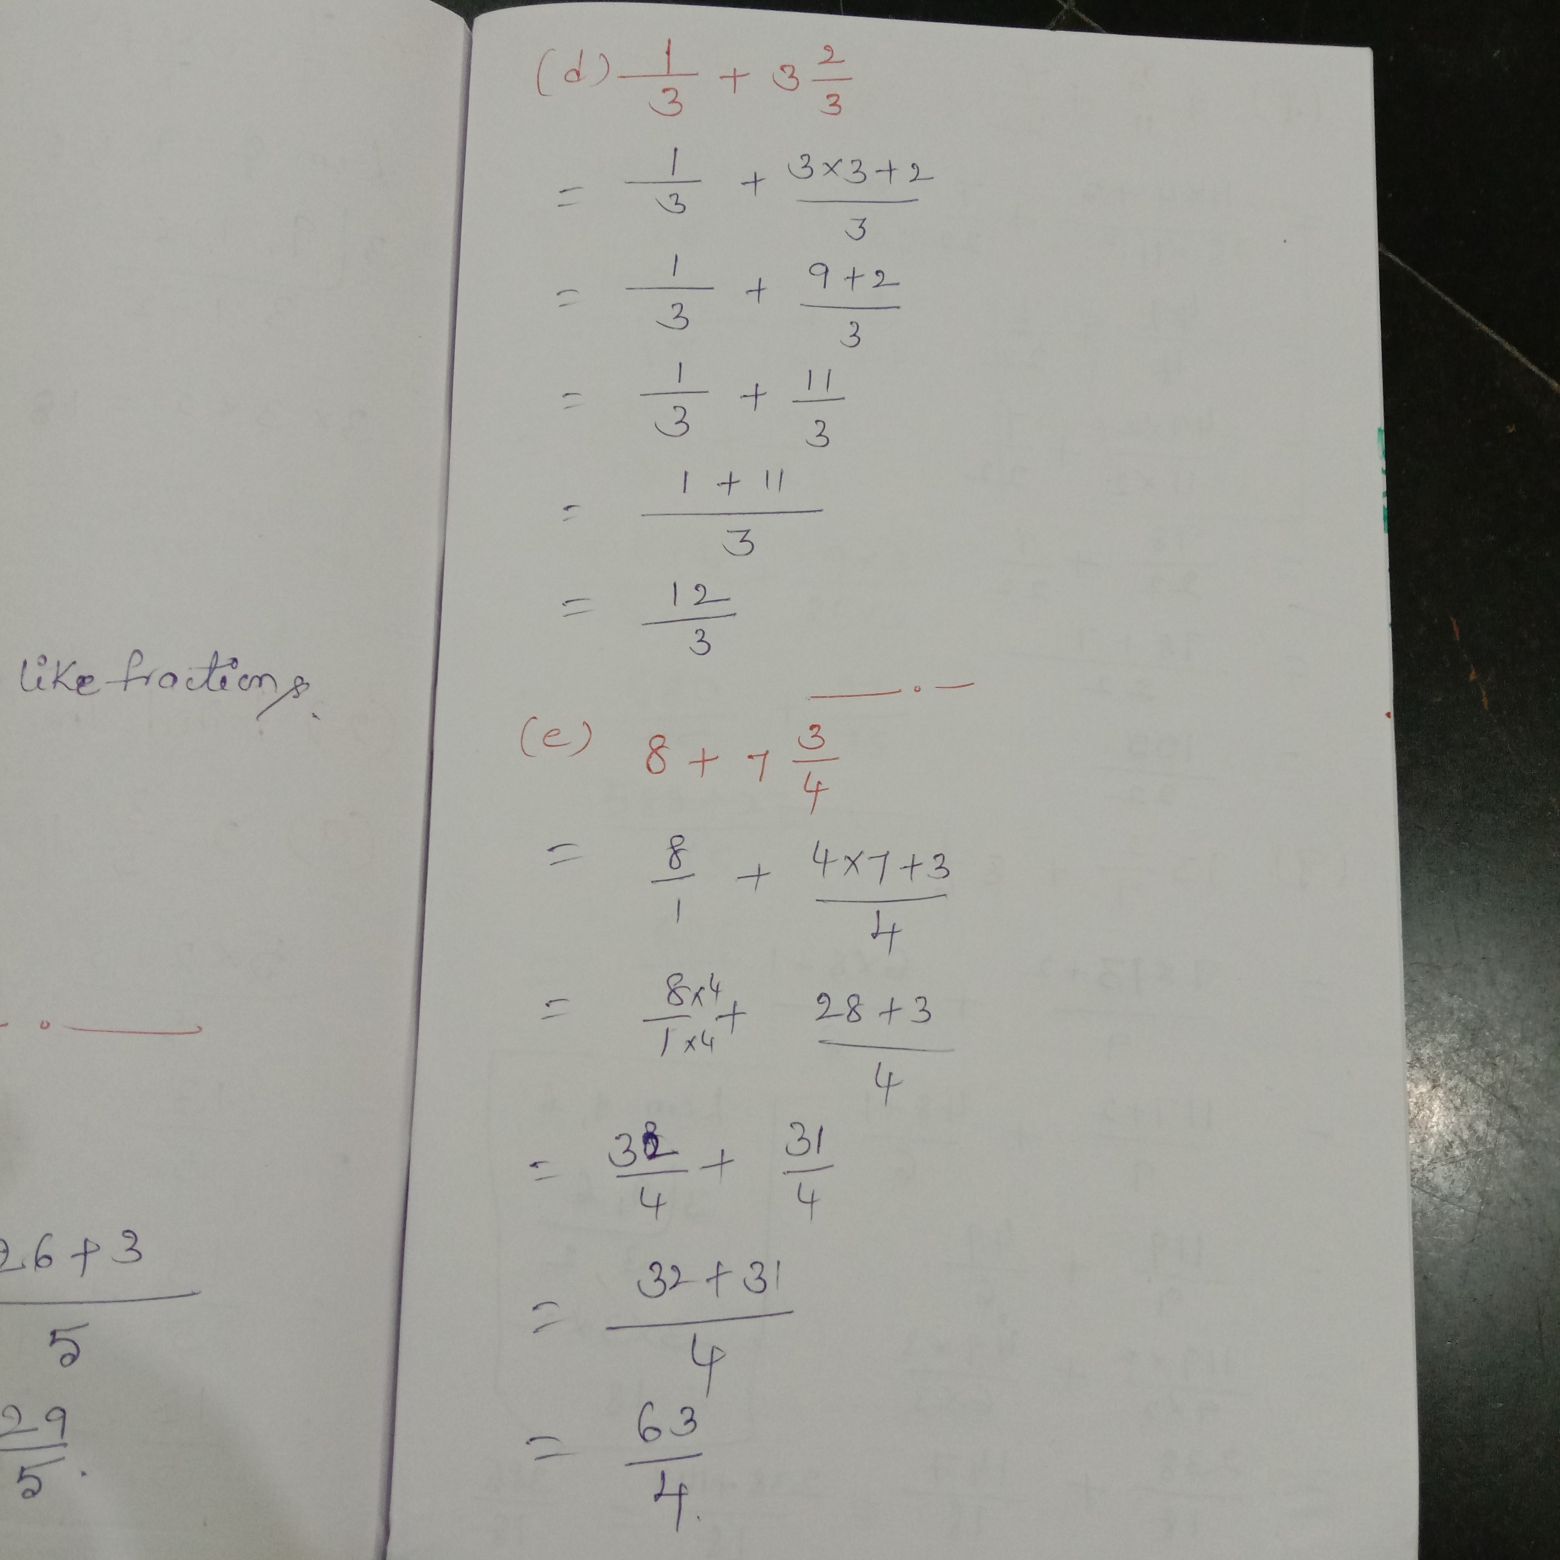 like fractions.
26 + 3
5
29
5.
(d) 1/3 + 3 2/3
= 1/3 + (3×3+2)/3
= 1/3 + (9+2)/3
= 1/3 + 11/3
= (1 + 11)/3
= 12/3
(e) 8 + 7 3/4
= 8/1 + (4×7+3)/4
= (8×4)/(1×4) + (28+3)/4
= 32/4 + 31/4
= (32+31)/4
= 63/4.